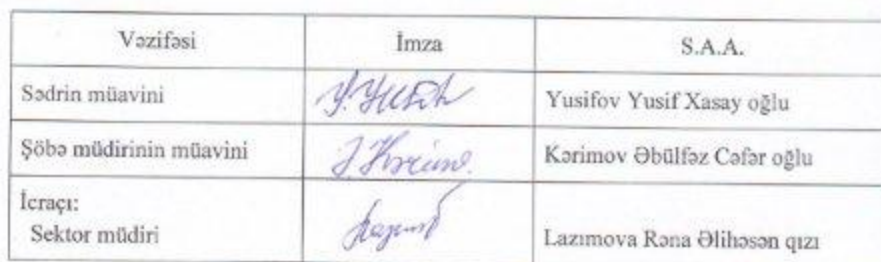 Vəzifəsi İmza S.A.A.
Sədrin müavini Yusifov Yusif Xasay oğlu
Şöbə müdirinin müavini Kərimov Əbülfəz Cəfər oğlu
İcraçı:
Sektor müdiri Lazımova Rəna Əlihəsən qızı